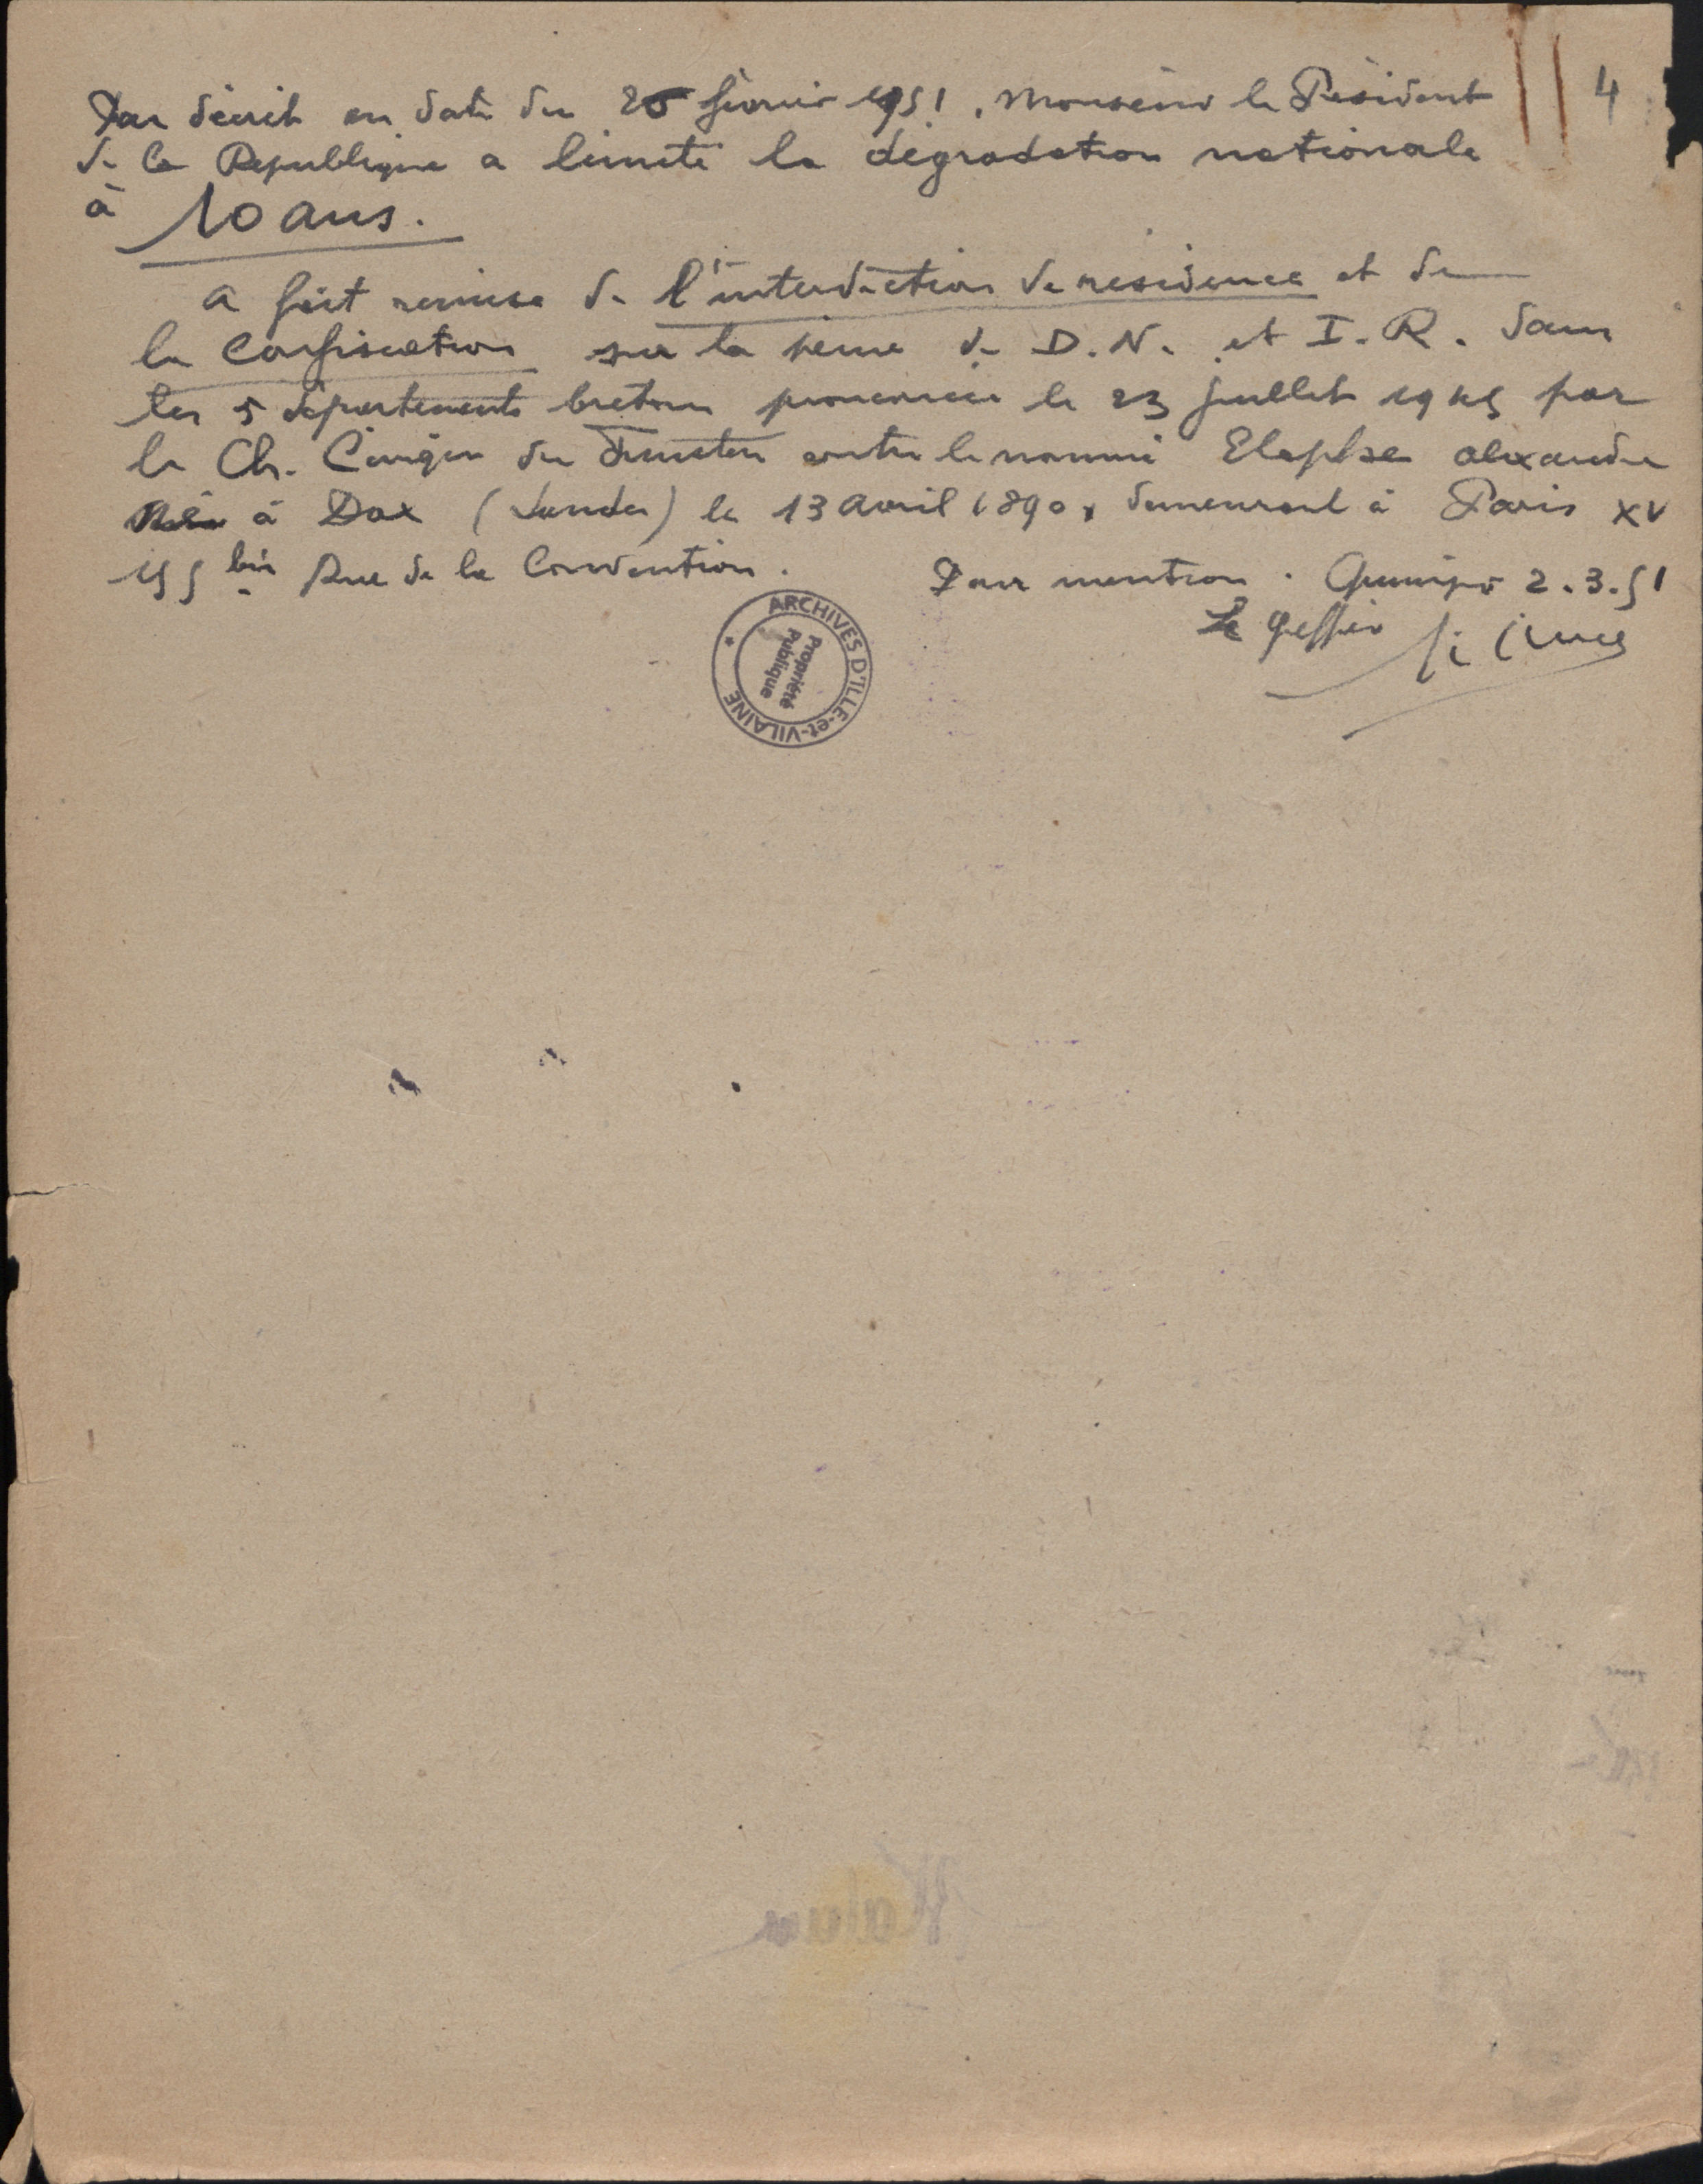 4
Par décret en date du 26 février 1951, Monsieur le Président
de la République a limité la dégradation nationale
à 10 ans.
a fait remise de l'interdiction de résidence et de
la Confiscation sur la peine de D.N. et I.R. dans
les 5 départements bretons prononcée le 23 Juillet 1945 par
la Ch. Civique du Finistère contre le nommé Elaphse alexandre
Né à Dax (Landes) le 13 avril 1890, demeurant à Paris XV
155 bis Rue de la Convention.
Pour mention. Quimper 2.3.51
Le Greffier
ARCHIVES D'ILLE-et-VILAINE
Propriété
Publique